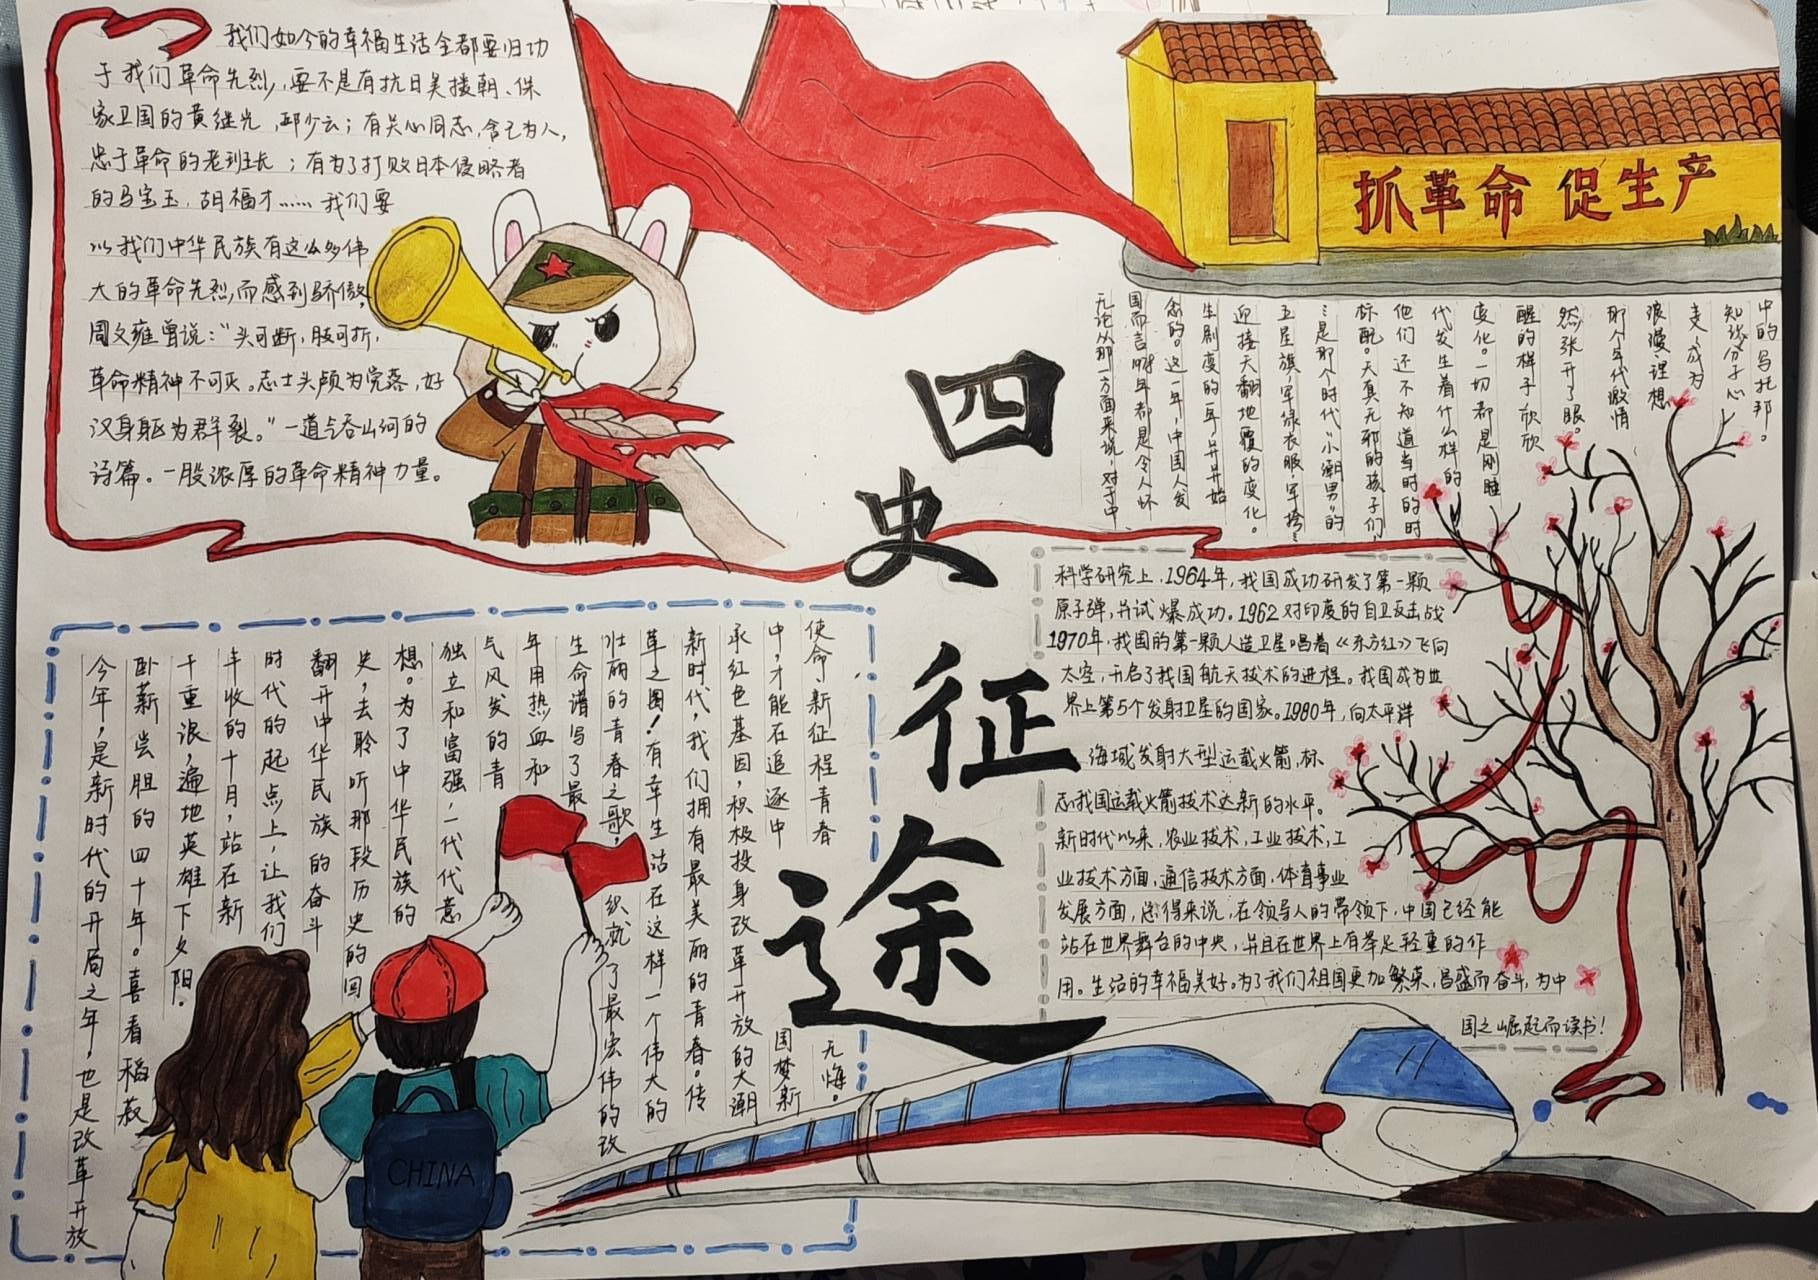 四史征途
我们如今的幸福生活全都要归功
于我们革命先烈，要不是有抗日美援朝、保
家卫国的黄继光，邱少云；有关心同志，舍己为人，
忠于革命的老班长；有为了打败日本侵略者
的马宝玉，胡福才……我们要
以我们中华民族有这么多伟
大的革命先烈，而感到骄傲，
周文雍曾说：“头可断，肢可折，
革命精神不可灭。志士头颅为党落，好
汉身躯为群裂。”一道气吞山河的
诗篇。一股浓厚的革命精神力量。
抓革命 促生产
无论从那一方面来说，对于中
国而言，明年都是令人怀
念的。这一年，中国人发
生剧变的一年，并开始
迎接天翻地覆的变化。
五星旗，军绿衣服，军挎…
…是那个时代“小潮男”的
标配。天真无邪的孩子们，
他们还不知道当时的时
代发生着什么样的
变化。一切都是刚睡
醒的样子，欣欣
然张开了眼。
那个年代激情
浪漫，理想
支，成为
知识分子心
中的乌托邦。
科学研究上，1964年，我国成功研发了第一颗
原子弹，并试爆成功。1962对印度的自卫反击战
1970年，我国的第一颗人造卫星唱着《东方红》飞向
太空，开启了我国航天技术的进程。我国成为世
界上第5个发射卫星的国家。1980年，向太平洋
海域发射大型运载火箭，标
志我国运载火箭技术达新的水平。
新时代以来，农业技术，工业技术，工
业技术方面，通信技术方面，体育事业
发展方面，总得来说，在领导人的带领下，中国已经能
站在世界舞台的中央，并且在世界上有举足轻重的作
用。生活的幸福美好。为了我们祖国更加繁荣，昌盛而奋斗，为中
国之崛起而读书！
今年，是新时代的开局之年，也是改革开放
卧薪尝胆的四十年。喜看稻菽
千重浪，遍地英雄下夕阳。
丰收的十月，站在新
时代的起点上，让我们
翻开中华民族的奋斗
史，去聆听那段历史的回
想。为了中华民族的
独立和富强，一代代意
气风发的青
年用热血和
生命谱写了最
壮丽的青春之歌，织就了最宏伟的改
革之图！有幸生活在这样一个伟大的
新时代，我们拥有最美丽的青春。传
承红色基因，积极投身改革开放的大潮
中，才能在追逐中国梦新
使命新征程青春无悔。
CHINA